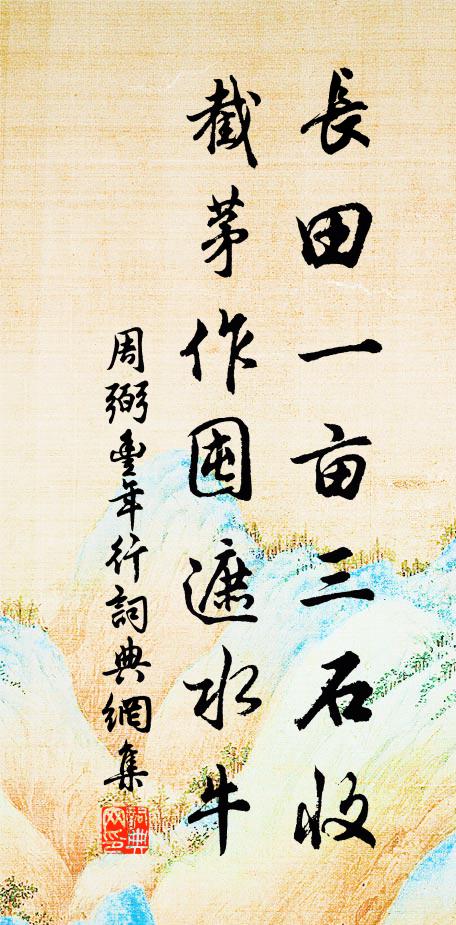 長田一亩三石收
截茅作囤遮水牛
周弼豐年行詞典網集